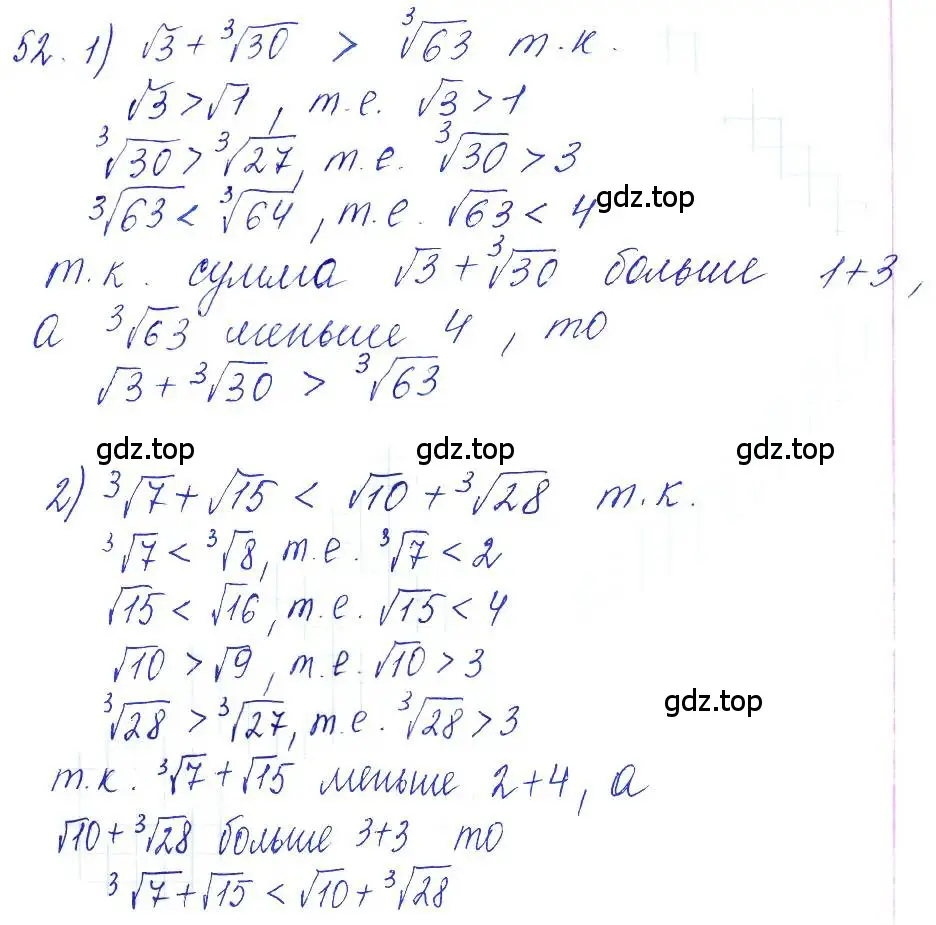 52. 1) √3 + ∛30 > ∛63 т.к.
√3 > √1, т.е. √3 > 1
∛30 > ∛27, т.е. ∛30 > 3
∛63 < ∛64, т.е. √63 < 4
gdz.top
т.к. сумма √3 + ∛30 больше 1+3,
а ∛63 меньше 4, то
√3 + ∛30 > ∛63
gdz.top gdz.top gdz.top
2) ∛7 + √15 < √10 + ∛28 т.к.
∛7 < ∛8, т.е. ∛7 < 2
√15 < √16, т.е. √15 < 4
√10 > √9, т.е. √10 > 3
∛28 > ∛27, т.е. ∛28 > 3
gdz.top
т.к. ∛7 + √15 меньше 2+4, а
√10 + ∛28 больше 3+3 то
∛7 + √15 < √10 + ∛28